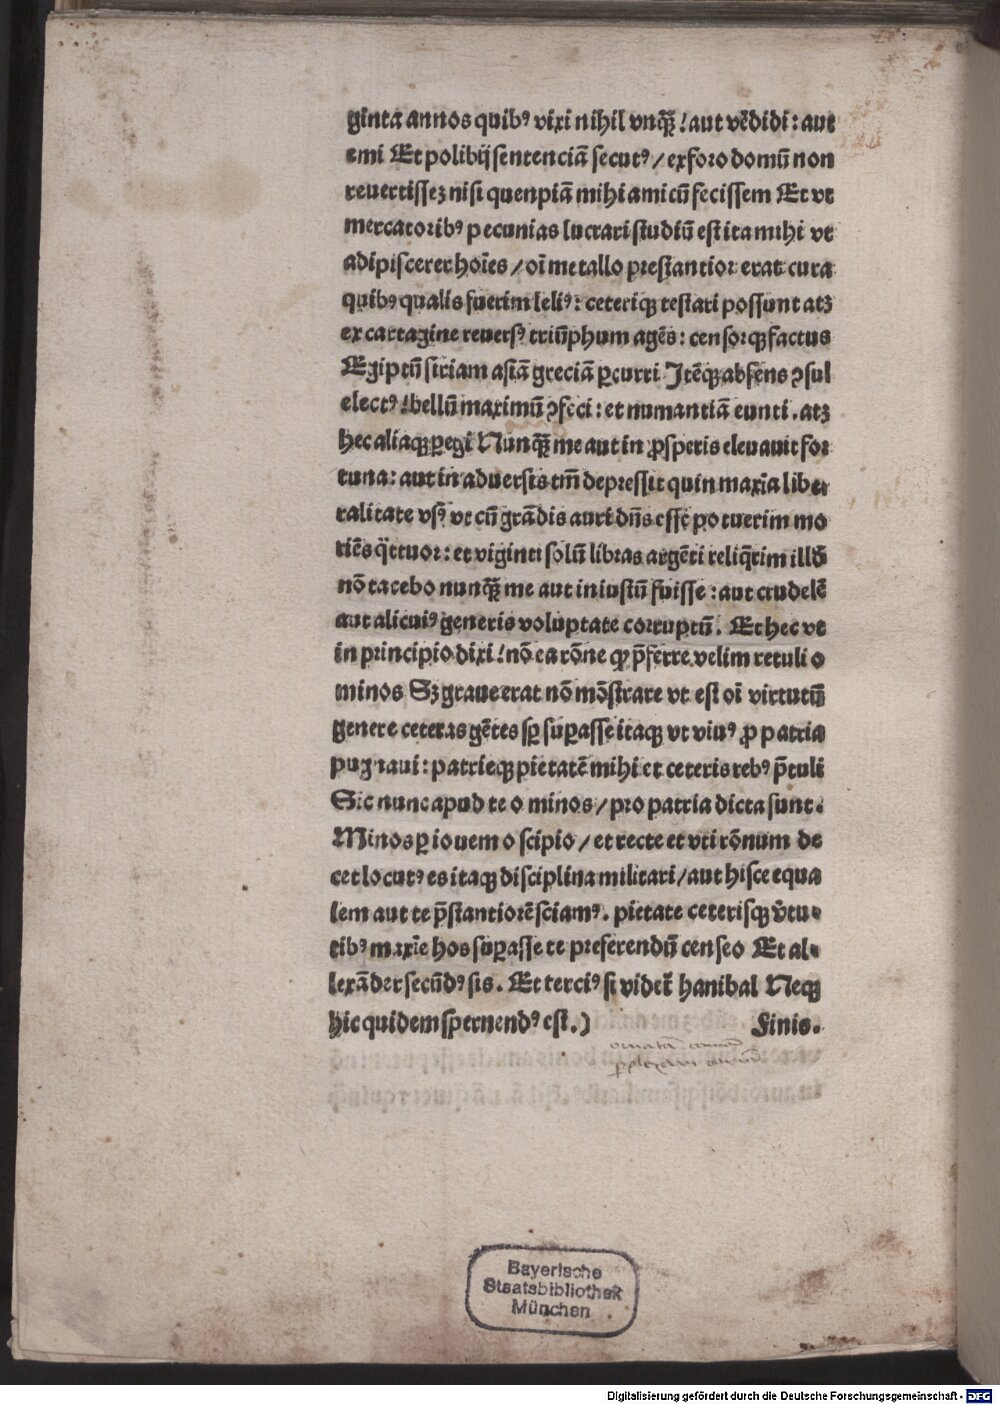 ginta annos quibꝰ vixi nihil vnqᷓꝫ / aut vēdidi : aut
emi Et polibij sentenciā secutꝰ / ex foro domū non
reuertissez nisi quenpiā mihi amicū fecissem Et vt
mercatoribꝰ pecunias lucrari studiū est ita mihi vt
adipiscerer hoīes / oī metallo prestantior erat cura
quibꝰ qualis fuerim leliꝰ : ceteriqꝫ testari possunt atꝫ
ex cartagine reuersꝰ triūphum agēs : censorqꝫ factus
Egiptū siriam asiā greciā ꝑcurri Itēqꝫ absens ꝯsul
electꝰ / bellū maximū ꝯfeci : et numantiā eunti . atꝫ
hec aliaqꝫ ꝑegi Nunqᷓꝫ me aut in ꝓsperis eleuauit for
tuna : aut in aduersis tm̄ depressit quin maxīa libe⸗
ralitate vsꝰ vt cū grādis auri dn̄s esse potuerim mo
riēs qᷓttuor : et viginti solū libras argēti reliq̄rim illd̄
nō tacebo nunqᷓꝫ me aut iniustū fuisse : aut crudelē
aut alicuiꝰ generis voluptate corruptū . Et hec vt
in principio dixi / nō ea rōne qꝙ p̄ferre velim retuli o
minos Sꝫ graue erat nō mōstrare vt est oī virtutū
genere ceteras gētes sꝑ suꝑasse itaqꝫ vt viuꝰ ꝓ patria
pugnaui : patrieqꝫ pietatē mihi et ceteris rebꝰ p̄tuli
Sic nunc apud te o minos / pro patria dicta sunt .
Minos ꝑ iouem o scipio / et recte et vti rōnum de
cet locutꝰ es itaqꝫ disciplina militari / aut hisce equa
lem aut te p̄stantiorē sciamꝰ . pietate ceterisqꝫ v̄tu⸗
tibꝰ maxīe hos suꝑasse te preferendū censeo Et al⸗
lexāder secūdꝰ sis . Et terciꝰ si videt̄ hanibal Neqꝫ
hic quidem spernendꝰ est . ) Finis .
Bayerische
Staatsbibliothek
München
Digitalisierung gefördert durch die Deutsche Forschungsgemeinschaft - DFG